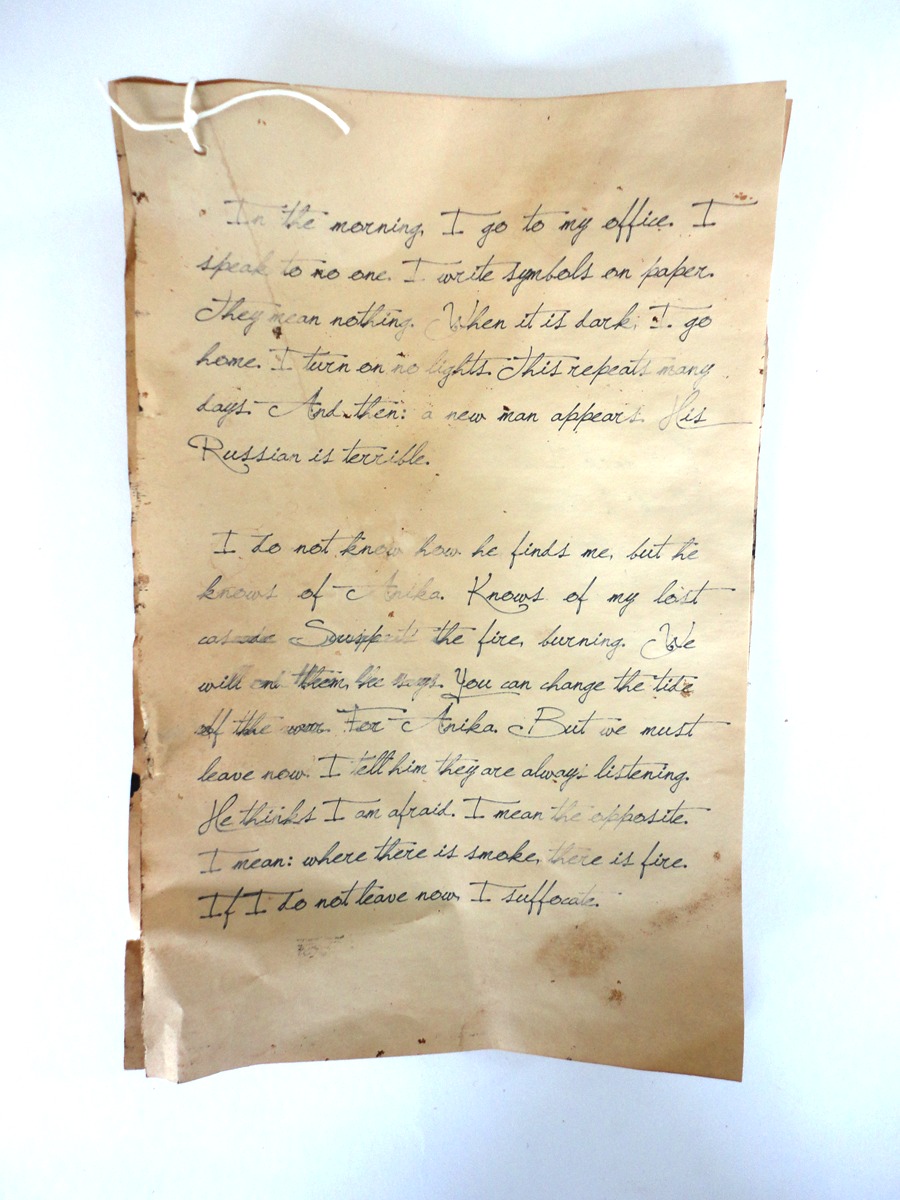 In the morning, I go to my office. I
speak to no one. I write symbols on paper.
They mean nothing. When it is dark, I go
home. I turn on no lights. This repeats many
days. And then: a new man appears. His
Russian is terrible.
I do not know how he finds me, but he
knows of Anika. Knows of my lost
the fire, burning. We
will end them, he says. You can change the tide
of the war. For Anika. But we must
leave now. I tell him they are always listening.
He thinks I am afraid. I mean the opposite.
I mean: where there is smoke, there is fire.
If I do not leave now, I suffocate.